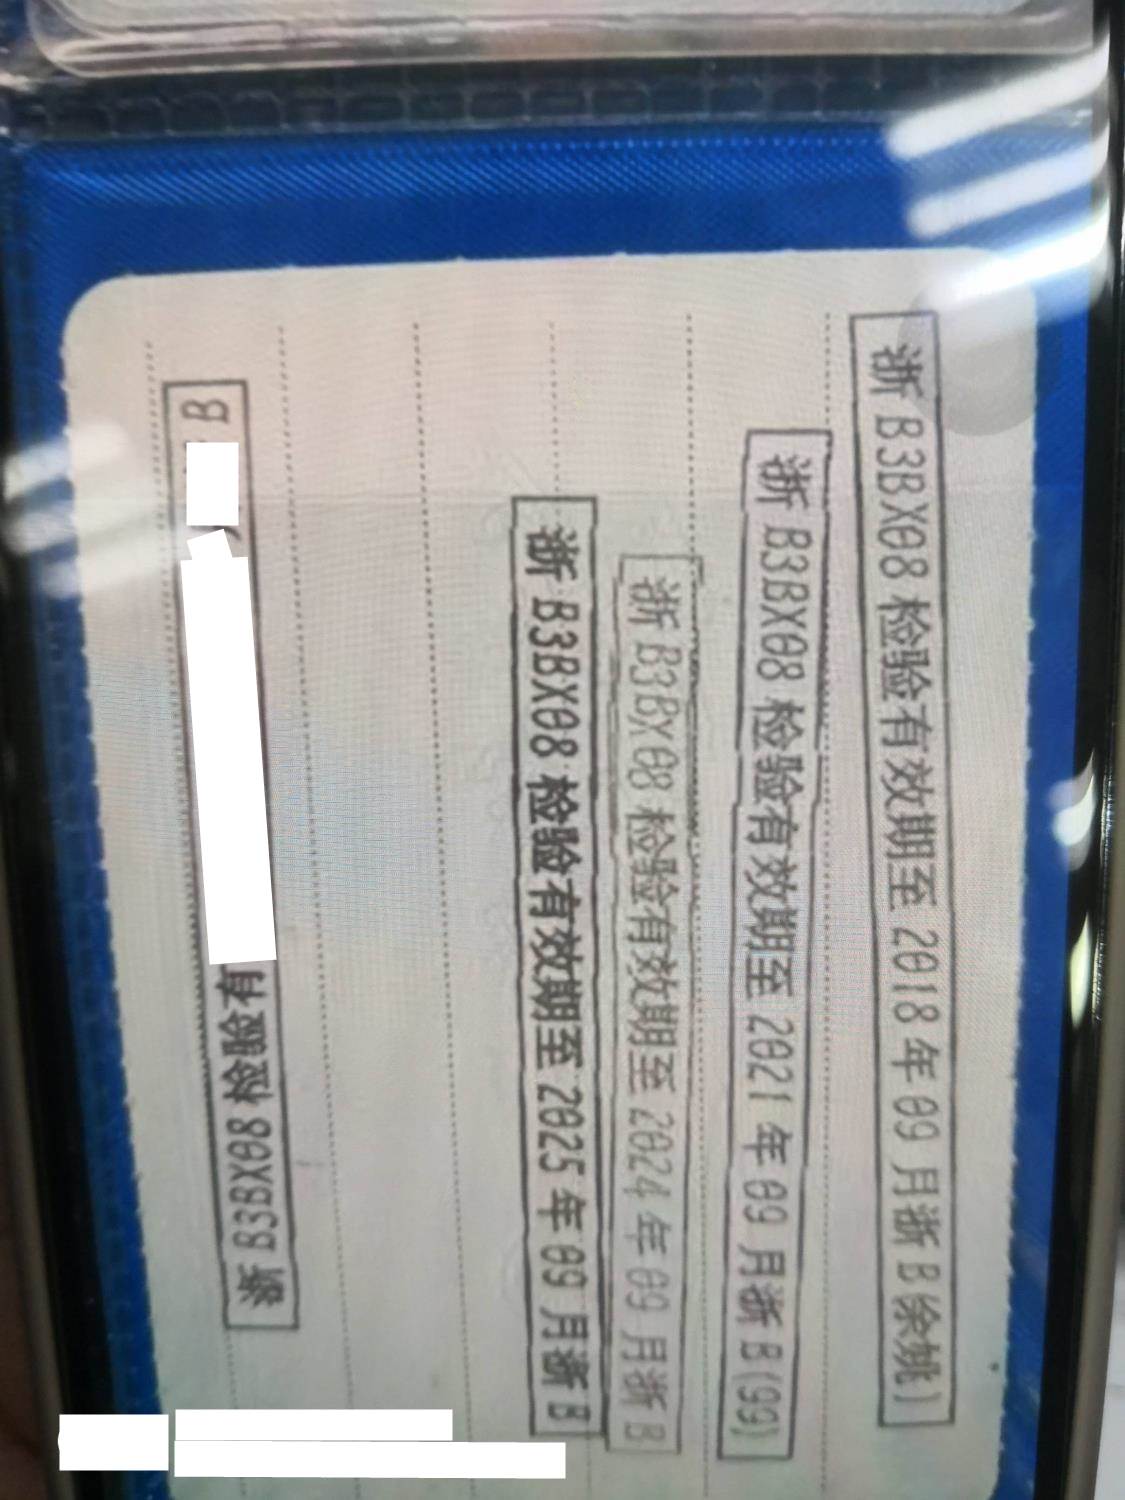 浙 B3BX08 检验有效期至 2018 年 09 月浙 B 余姚)
浙 B3BX08 检验有效期至 2021 年 09 月浙 B(99)
浙 B3BX08 检验有效期至 2024 年 09 月浙 B
浙 B3BX08 检验有效期至 2025 年 09 月浙 B
浙 B3BX08 检验有
B